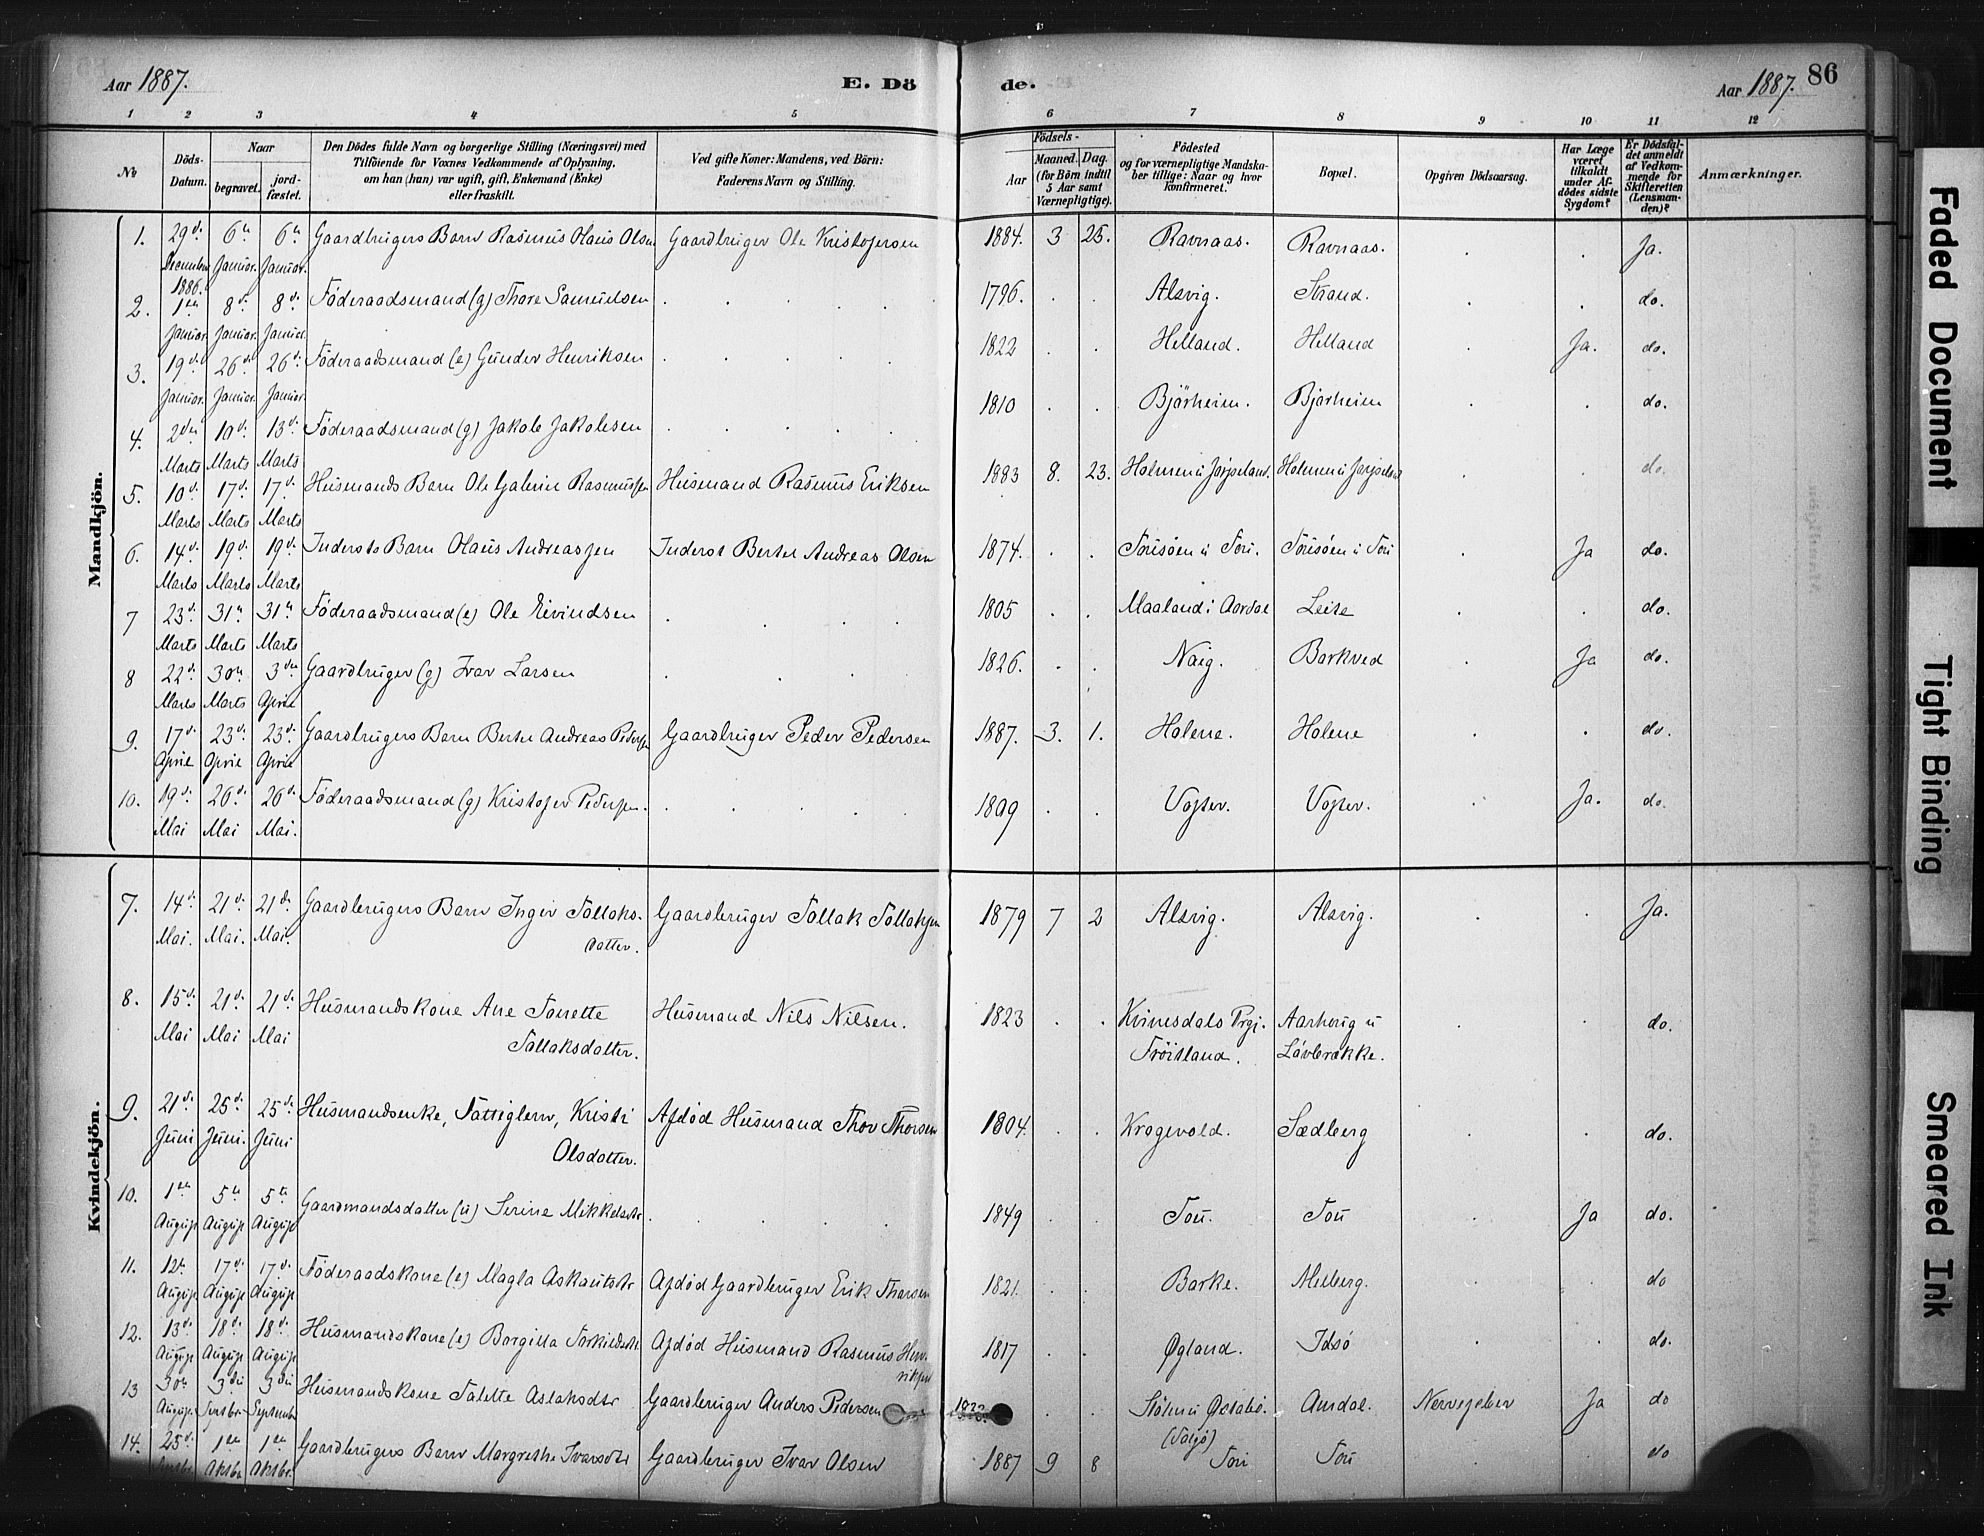 Aar 1887. E. Dö de. Aar 1887. 86
1 2 3 4 5 6 7 8 9 10 11 12
No
Döds-Datum.
Naar
begravet.
jord-fæstet.
Den Dödes fulde Navn og borgerlige Stilling (Næringsvei) med
Tilföiende for Voxnes Vedkommende af Oplysning,
om han (hun) var ugift, gift, Enkemand (Enke)
eller fraskilt.
Ved gifte Koner: Mandens, ved Börn:
Faderens Navn og Stilling.
Födsels-
Aar
Maaned. Dag.
(for Börn indtil
5 Aar samt
Værnepligtige).
Födested
og for værnepligtige Mandska-
ber tillige: Naar og hvor
konfirmeret.
Bopæl.
Opgiven Dödsaarsag.
Har Læge
været
tilkaldt
under Af-
dödes sidste
Sygdom?
Er Dödsfal-
det anmeldt
af Vedkom-
mende for
Skifteretten
(Lensman-
den)?
Anmærkninger.
Mandkjön.
1. 29de December 1886. 6te Januar. 6te Januar. Gaardbrugers Barn Rasmus Olaus Olsen Gaardbruger Ole Kristofersen 1884. 3 25. Ravnaas. Ravnaas. Ja.
2. 1ste Januar. 8de Januar. 8de Januar. Föderaadsmand (g) Thore Samuelsen 1796. Alsvig. Strand. do.
3. 19de Januar. 26de Januar. 26de Januar. Föderaadsmand (e) Gunder Henriksen 1822 Helland. Helland Ja. do.
4. 2den Marts 10de Marts 13de Marts Föderaadsmand (g) Jakob Jakobsen 1810 Bjørheim. Bjørheim do.
5. 10de Marts 17de Marts 17de Marts Husmands Barn Ole Gabriel Rasmussen Husmand Rasmus Eriksen 1883 8. 23. Holmen u Jørpeland. Holmen u Jørpeland do.
6. 14de Marts 19de Marts 19de Marts Inderste Barn Olaus Andreassen Inderst Bertel Andreas Olsen 1874. Tousøen u Tou. Tousøen u Tou Ja do.
7 23de Marts 31te Marts 31te Marts Föderaadsmand (e) Ole Eivindsen 1805 Maaland i Aardal Leite do.
8 22de Marts 30te Marts 3die April Gaardbruger (g) Ivar Larsen 1826. Naig. Barkved Ja do.
9. 17de April 23de April 23de April Gaardbrugers Barn Bertel Andreas Pedersen Gaardbruger Peder Pedersen 1887. 3. 1. Holene. Holene do.
10. 19de Mai 26de Mai 26de Mai. Föderaadsmand (g) Kristofer Pedersen. 1809 Vojster. Vojster. Ja. do.
Kvindekjön.
7. 14de Mai. 21de Mai. 21de Mai. Gaardbrugers Barn Inger Tollaksdatter. Gaardbruger Tollak Tollaksen 1879 7 2 Alsvig. Alsvig. Ja.
8. 15de Mai 21de Mai 21de Mai Husmandskone Ane Tonette Tollaksdatter. Husmand Nils Nilsen. 1823 Kvinesdals Prgj. Frøitland. Aarberg u Løvbrække. do.
9. 21de Juni 25de Juni. 25de Juni Husmandsenke, Fattiglem, Kristi Olsdatter. Afdød Husmand Thor Thorsen 1804. Kragevold. Sædberg do.
10. 1ste August 5te August 5te August Gaardmandsdatter (u) Serine Mikkelsdtr 1849 Tou. Tou Ja do.
11. 12te August 17de August 17de August Föderaadskone (e) Magla Askautsdtr Afdød Gaardbruger Erik Thorsen 1821. Barke. Melberg. do
12. 13de August 18de August 18de August Husmandskone (e) Borgilla Torkildsdtr. Afdød Husmand Rasmus Henriksen 1817 Øgland. Idsö do.
13 30te August 3die Septbr. 3die September Husmandskone Talette Aslaksdtr Gaardbruger Anders Pedersen Amdal. Nervefeber Ja do
14. 25de Septbr 1ste Oktbr 1ste Oktbr. Gaardbrugers Barn Margrethe Ivarsdtr Gaardbruger Ivar Olsen 1887 9 8 Tou Tou do
Faded Document
Tight Binding
Smeared Ink